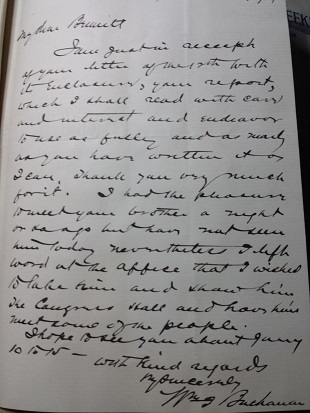 My dear Bennitt
I am just in receipt
of your letter of the 13th with
its Enclosure, your report,
which I shall read with care
and interest and endeavor
to use as fully and as nearly
as you have written it as
I can. Thank you very much
for it. I had the pleasure
to meet your brother a night
or so ago but have not seen
him today nevertheless I left
word at the office that I wished
to take him and show him
the Congress Hall and have him
meet some of the people.
I hope to see you about Jany
10 to 15 - with kind regards
My Sincerely
Buchanan